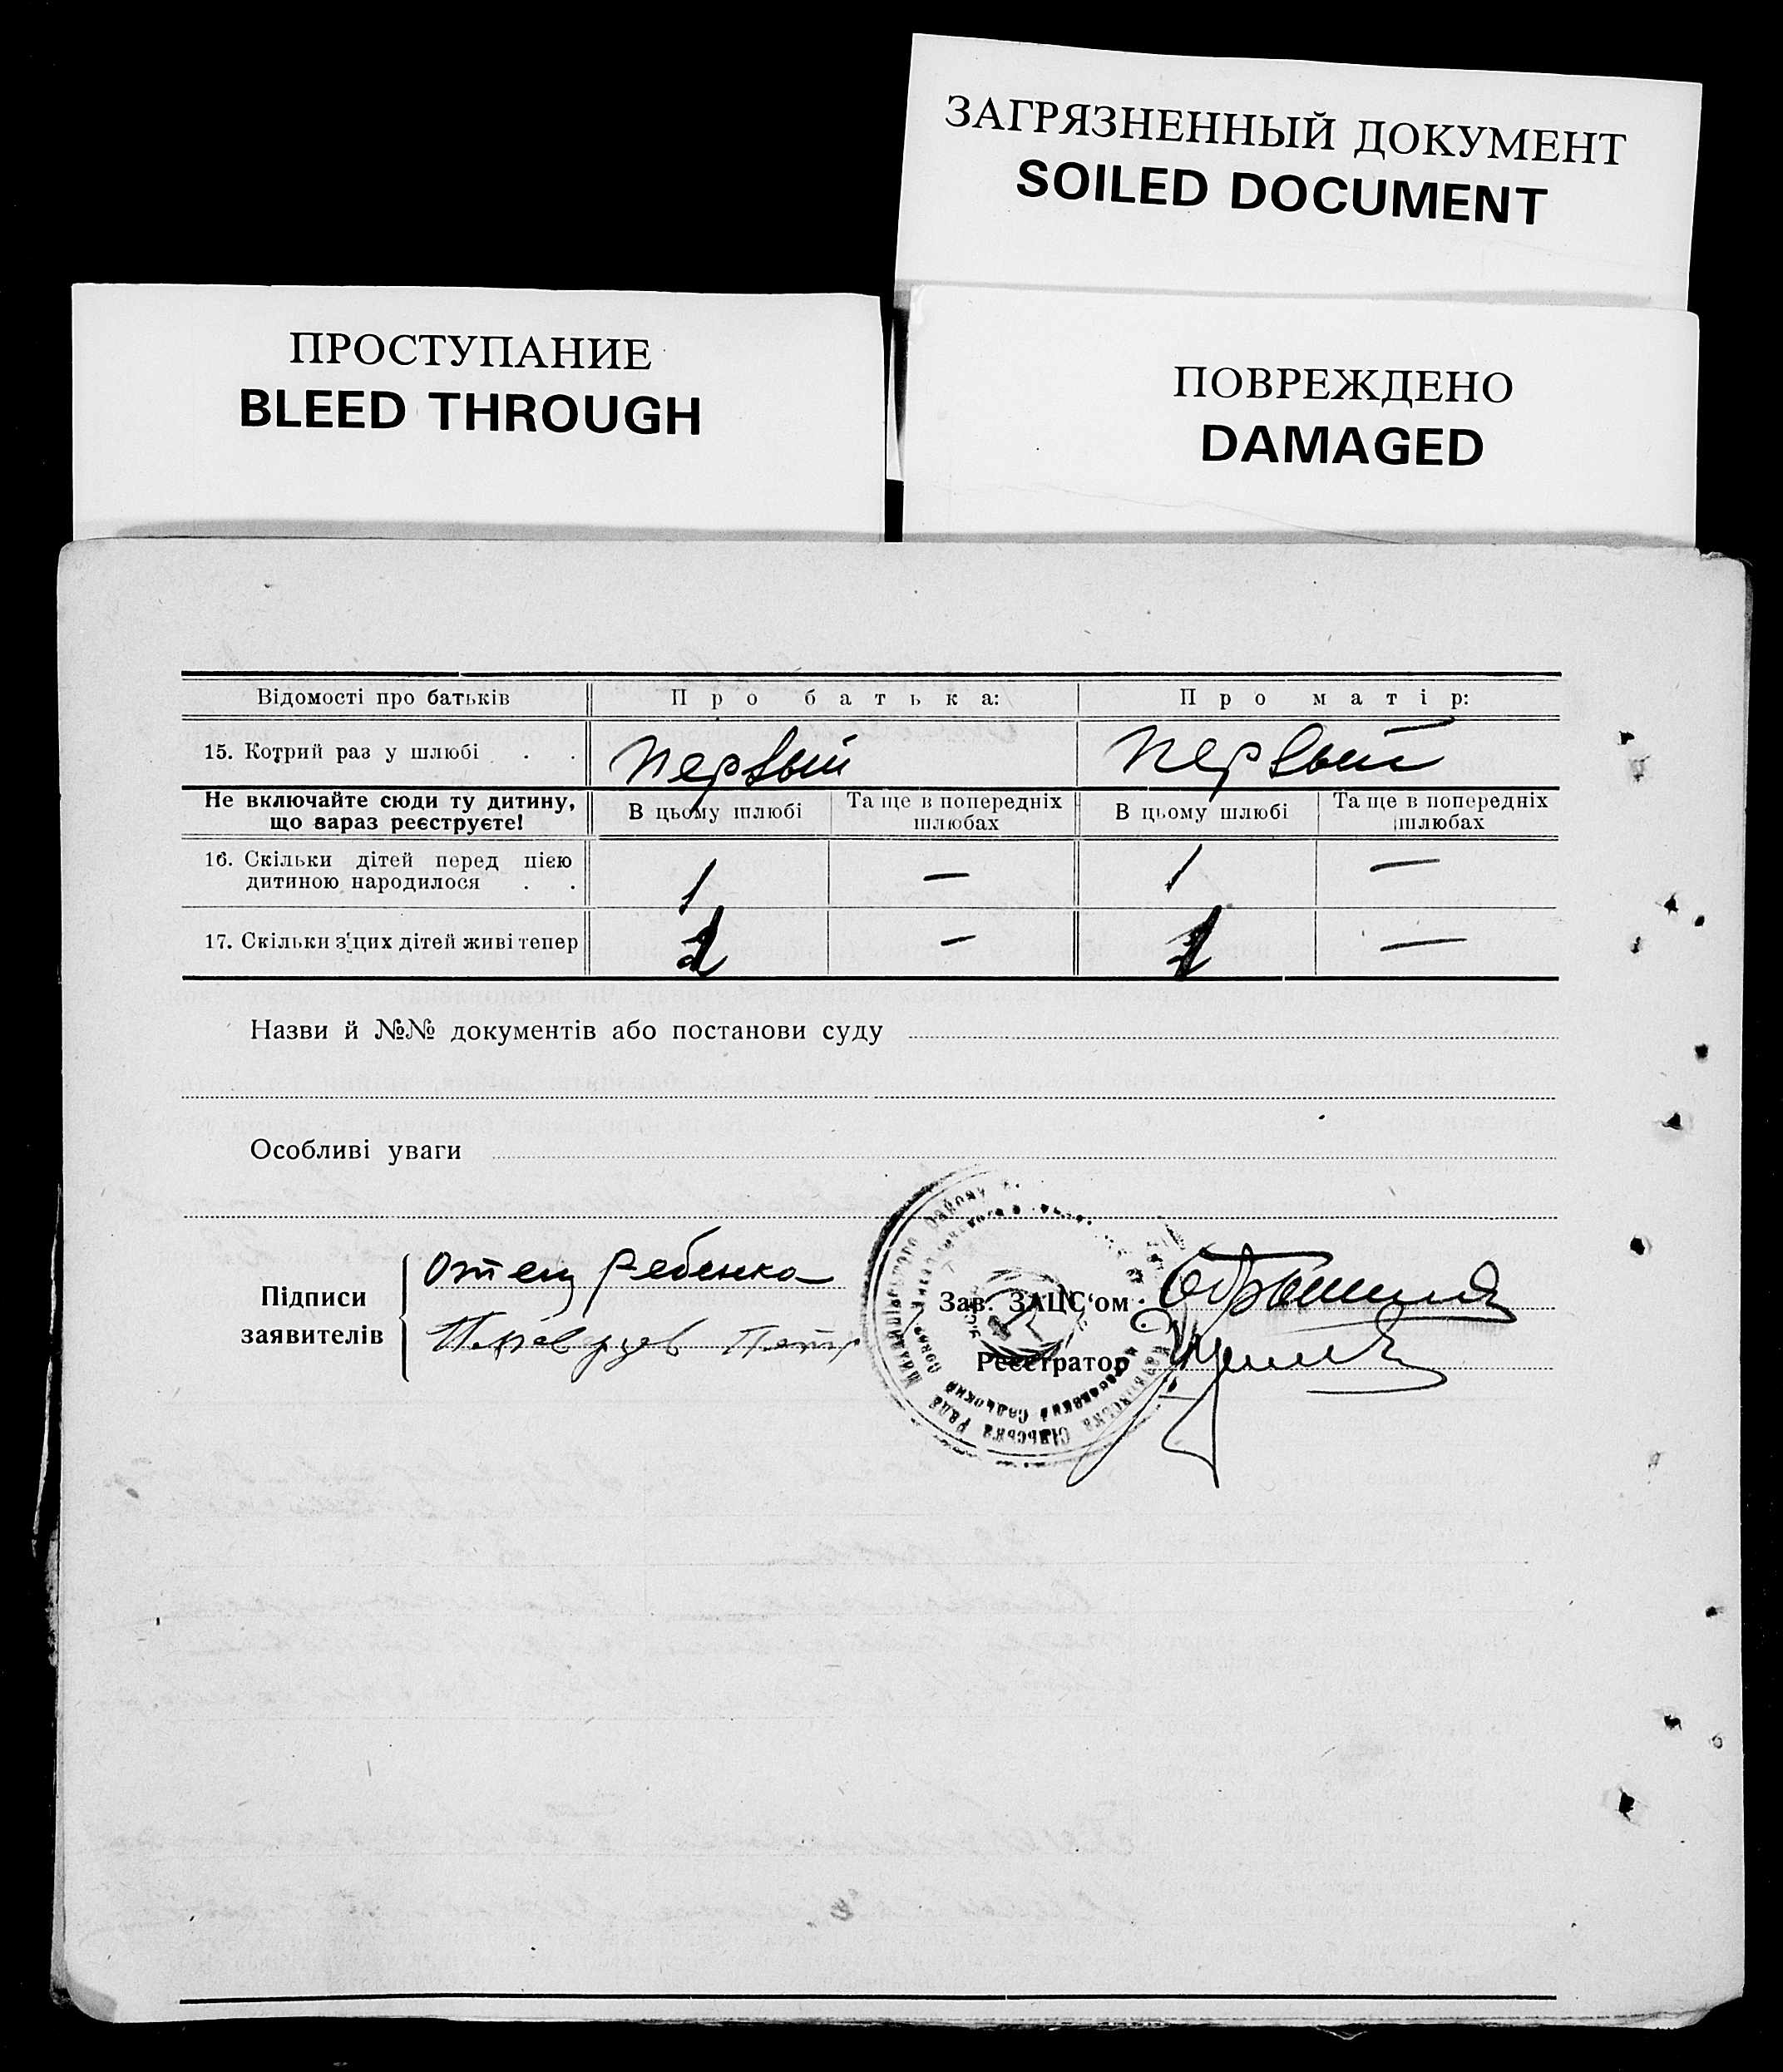 ЗАГРЯЗНЕННЫЙ ДОКУМЕНТ
SOILED DOCUMENT
ПРОСТУПАНИЕ
BLEED THROUGH
ПОВРЕЖДЕНО
DAMAGED
Відомості про батьків П р о б а т ь к а: П р о м а т і р:
15. Котрий раз у шлюбі . . Первый Первый
Не включайте сюди ту дитину, що зараз реєструєте! В цьому шлюбі Та ще в попередніх шлюбах В цьому шлюбі Та ще в попередніх шлюбах
16. Скільки дітей перед цією
дитиною народилося . . 1 — 1 —
17. Скільки з цих дітей живі тепер 1 — 1 —
Назви й №№ документів або постанови суду
Особливі уваги
Підписи заявителів
Отец ребенка
Петр
Зав. ЗАЦС'ом
Реєстратор
Сільська Рада
району